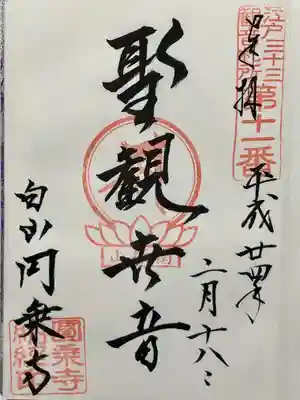 江戸三十三
観音札所
第十一番
奉拝
平成廿四年
二月十八日
聖觀世音
白山円乗寺
圓乗寺